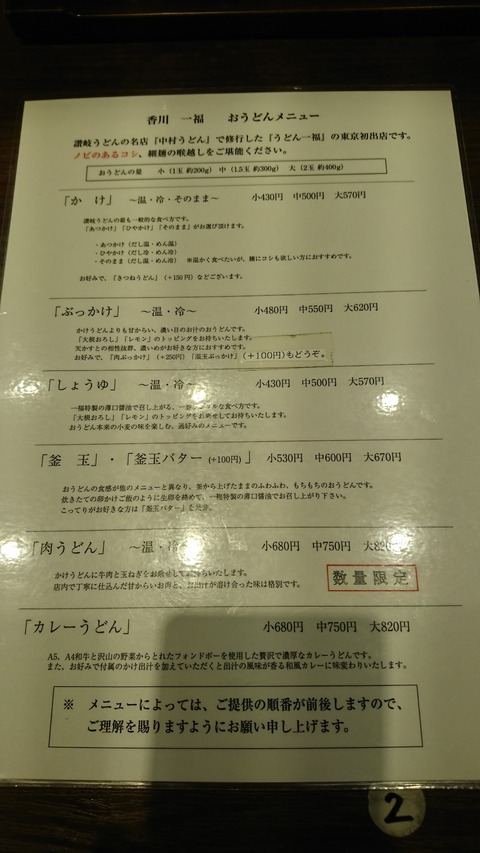 香川 一福 おうどんメニュー
讃岐うどんの名店『中村うどん』で修行した『うどん一福』の東京初出店です。
ノビのあるコシ、細麺の喉越しをご堪能ください。
おうどんの量 小（1玉 約200g） 中（1.5玉 約300g） 大（2玉 約400g）
「か け」 ～温・冷・そのまま～ 小430円 中500円 大570円
讃岐うどんの最も一般的な食べ方です。
「あつかけ」「ひやかけ」「そのまま」がお選び頂けます。
・あつかけ（だし温・めん温）
・ひやかけ（だし冷・めん冷）
・そのまま（だし温・めん冷） ※温かく食べたいが、麺にコシも欲しい方におすすめです。
お好みで、「きつねうどん」（+150円）などございます。
「ぶっかけ」 ～温・冷～ 小480円 中550円 大620円
かけうどんよりも甘からい、濃い目のお汁のおうどんです。
「大根おろし」「レモン」のトッピングをお持ちいたします。
天かすとの相性抜群、濃いめがお好きな方におすすめです。
お好みで、「肉ぶっかけ」（+250円）「温玉ぶっかけ」（+100円）もどうぞ。
「しょうゆ」 ～温・冷～ 小430円 中500円 大570円
一福特製の薄口醤油で召し上がる、一番シンプルな食べ方です。
「大根おろし」「レモン」のトッピングをお載せしてお持ちいたします。
おうどん本来の小麦の味を楽しむ、通好みのメニューです。
「釜 玉」・「釜玉バター（+100円）」 小530円 中600円 大670円
おうどんの食感が他のメニューと異なり、釜から上げたままのふわふわ、もちもちのおうどんです。
炊きたての卵かけご飯のように生卵を絡めて、一福特製の薄口醤油でお召し上がり下さい。
こってりがお好きな方は「釜玉バター」を是非。
「肉うどん」 ～温・冷～ 小680円 中750円 大820円
かけうどんに牛肉と玉ねぎをお乗せしてお持ちいたします。
店内で丁寧に仕込んだ甘からいお肉と、お出汁が溶け合った味は格別です。
数量限定
「カレーうどん」 小680円 中750円 大820円
A5、A4和牛と沢山の野菜からとれたフォンドボーを使用した贅沢で濃厚なカレーうどんです。
また、お好みで付属のかけ出汁を加えていただくと出汁の風味が香る和風カレーに味変わりいたします。
※ メニューによっては、ご提供の順番が前後しますので、
ご理解を賜りますようにお願い申し上げます。
2